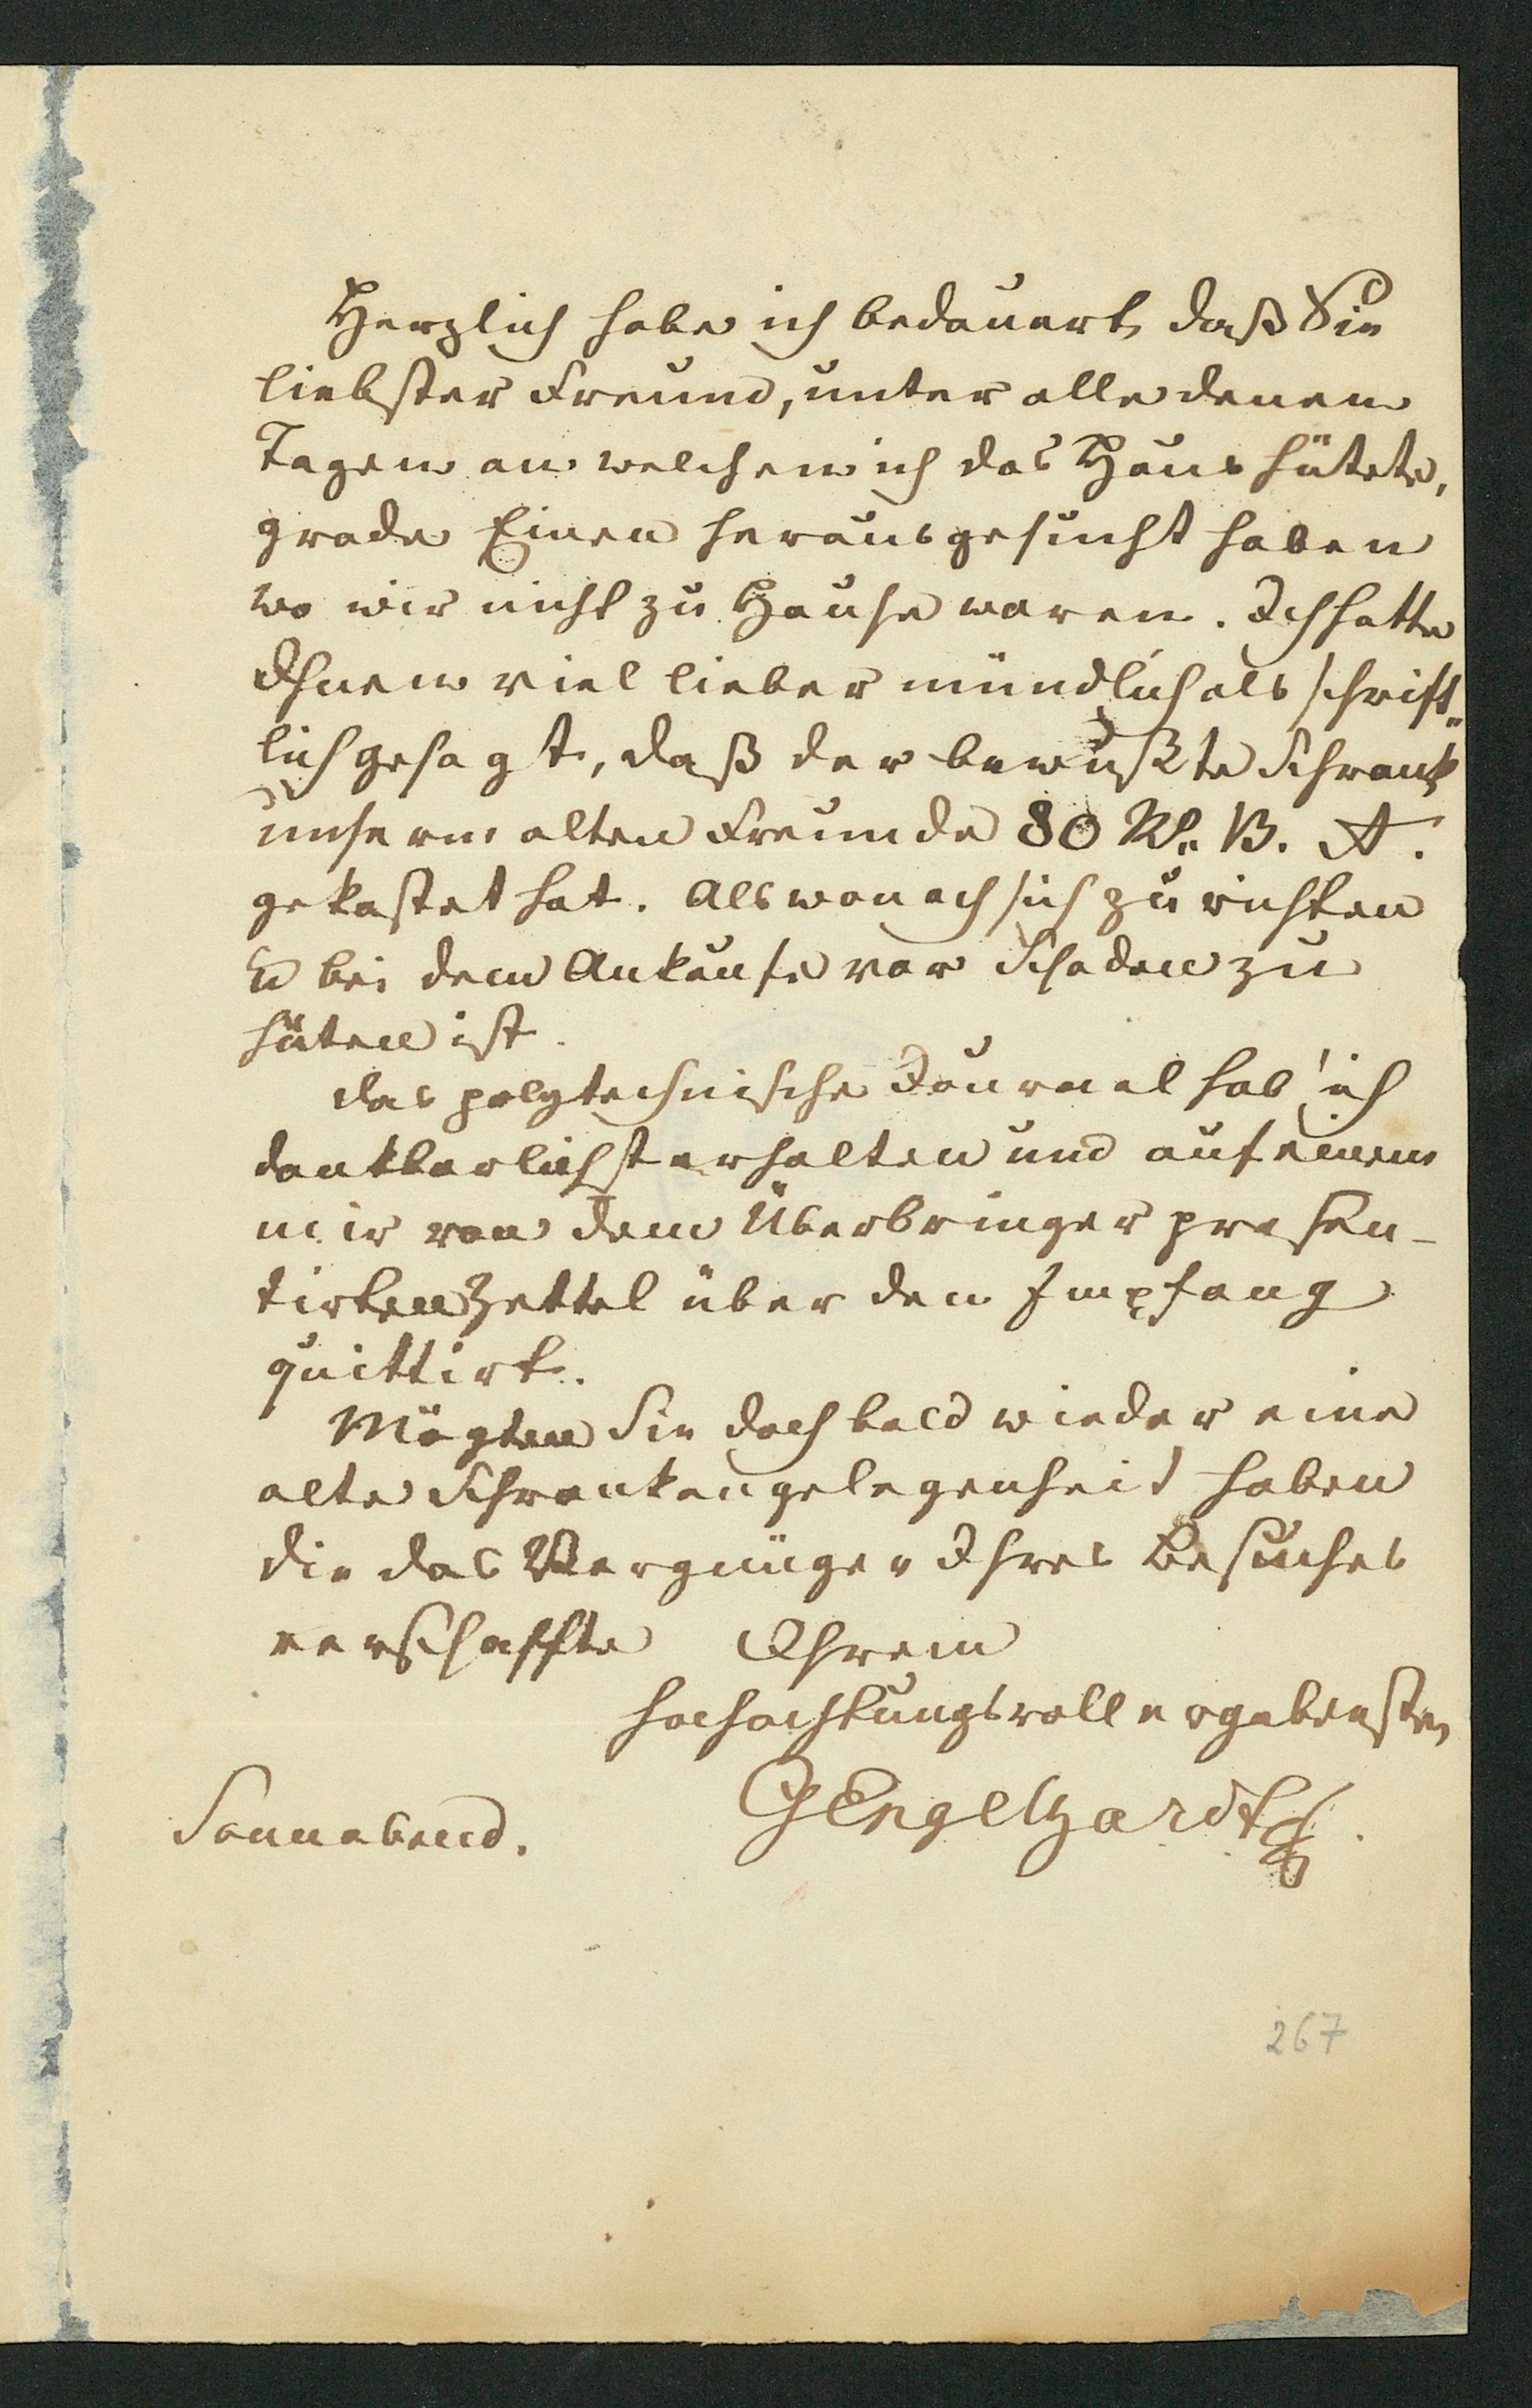 Herzlich habe ich bedauert, daß Sie
liebster Freund, unter alle denen
Tagen an welchen ich das Haus hütete,
grade Einen herausgesucht haben
wo wir nicht zu Hause waren. Ich hatte
Ihnen viel lieber mündlich als schrift„
lich gesagt, daß der bewußte Schrank
unserm alten Freunde 80 B. A.
gekostet hat. Als wonach sich zu richten
u bei dem Ankaufe vor Schaden zu
hüten ist.
Das polytechnische Journal hab' ich
dankbarlichst erhalten und auf einem
mir von dem Überbringer presen-
tirten Zettel über den Empfang
quittirt.
Mögten Sie doch bald wieder eine
alte Schrankangelegenheit haben
die das Vergnügen Ihres Besuches
verschaffte Ihrem
hochachtungsvoll ergebensten
GEngelhardt
Sonnabend.
267